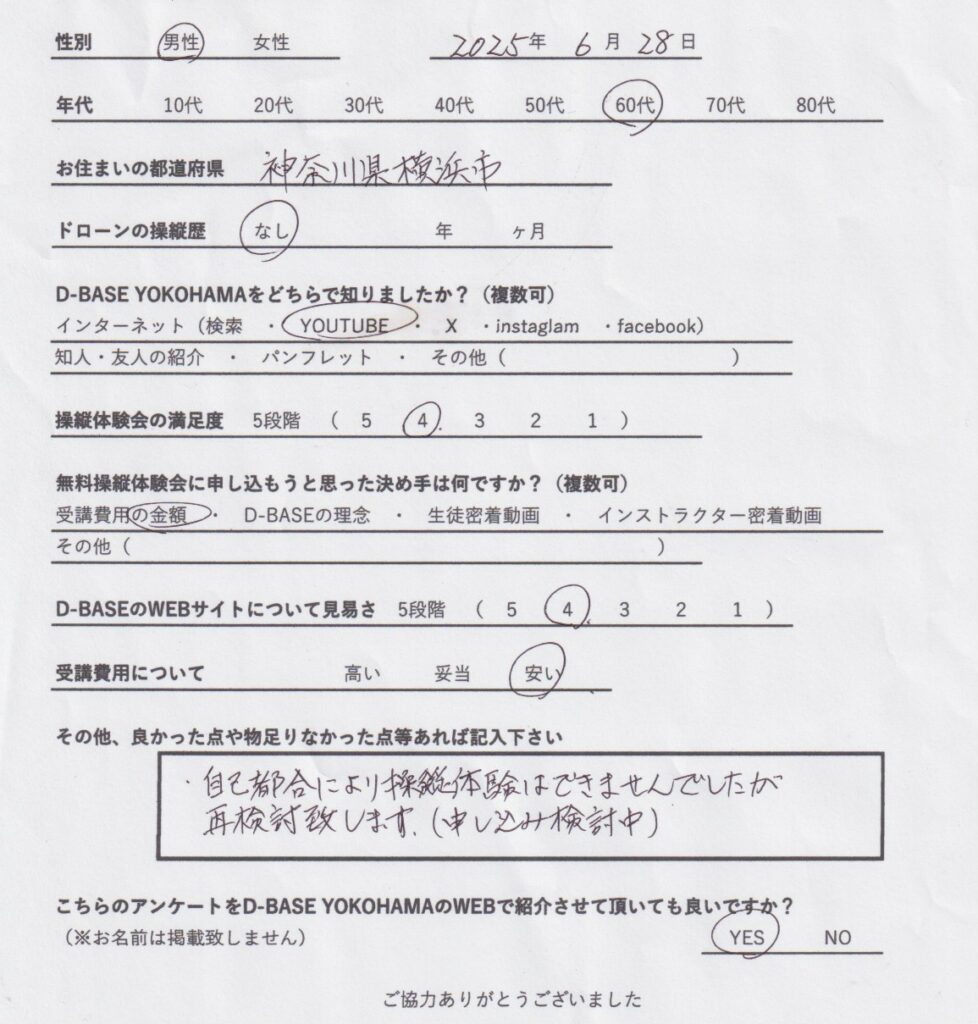 性別 男性 女性 2025年 6月 28日
年代 10代 20代 30代 40代 50代 60代 70代 80代
お住まいの都道府県 神奈川県横浜市
ドローンの操縦歴 なし 年 ヶ月
D-BASE YOKOHAMAをどちらで知りましたか？（複数可）
インターネット（検索 ・ YOUTUBE ・ X ・instaglam ・facebook）
知人・友人の紹介 ・ パンフレット ・ その他（ ）
操縦体験会の満足度 5段階 （ 5 4 3 2 1 ）
無料操縦体験会に申し込もうと思った決め手は何ですか？（複数可）
受講費用の金額 ・ D-BASEの理念 ・ 生徒密着動画 ・ インストラクター密着動画
その他（ ）
D-BASEのWEBサイトについて見易さ 5段階 （ 5 4 3 2 1 ）
受講費用について 高い 妥当 安い
その他、良かった点や物足りなかった点等あれば記入下さい
・自己都合により操縦体験はできませんでしたが
再検討致します.(申し込み検討中)
こちらのアンケートをD-BASE YOKOHAMAのWEBで紹介させて頂いても良いですか？
（※お名前は掲載致しません） YES NO
ご協力ありがとうございました